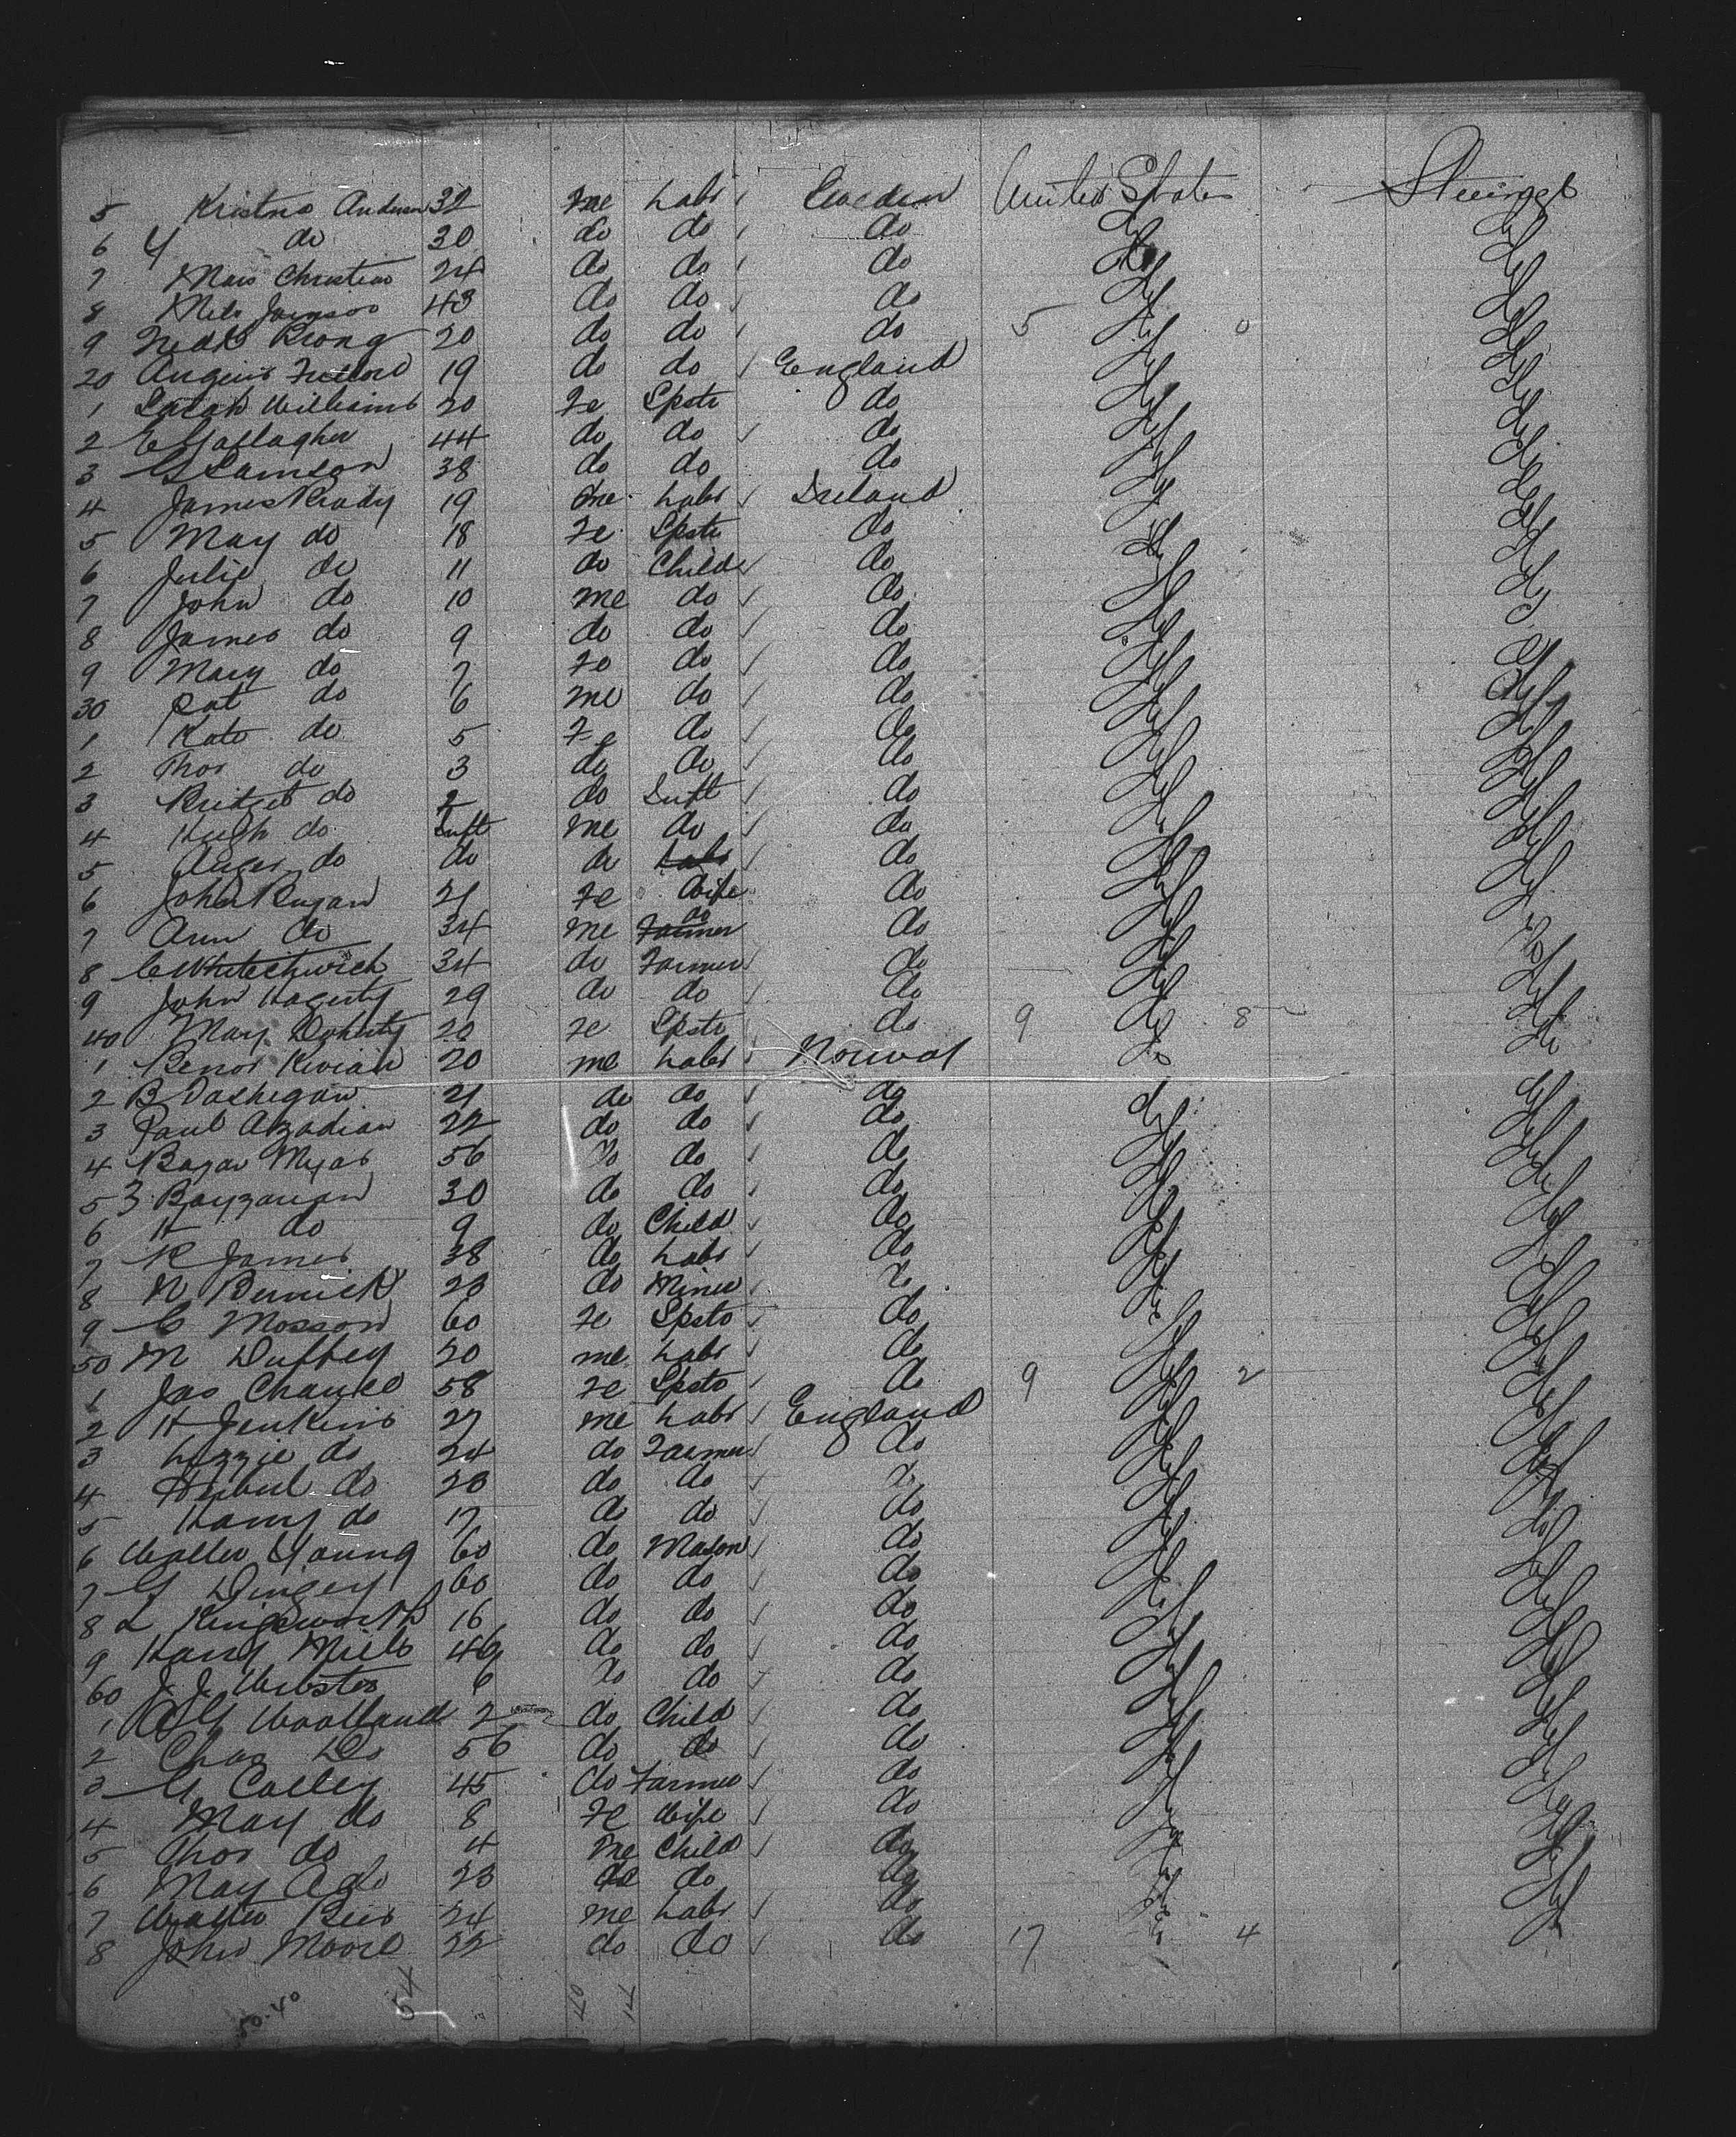 5 Kristno Anderson 32 me Labr Sweden United States Steerage
6 Y do 30 do do do do do
7 Mars Christian 24 do do do do do
8 Mels 43 do do do do do
9 20 do do do 5 do 0 do
20 19 do do England do do
1 Sarah Williams 20 Fe Spstr do do do
2 E Gallagher 44 do do do do do
3 G Samson 38 do do do do do
4 James Brady 19 me Labr Ireland do do
5 May do 18 Fe Spstr do do do
6 Julie do 11 do Child do do do
7 John do 10 me do do do do
8 James do 9 do do do do do
9 Mary do 7 Fe do do do do
30 Pat do 6 me do do do do
1 Kate do 5 Fe do do do do
2 Thos do 3 do do do do do
3 Bridget do 2 do Inft do do do
4 Hugh do Inft me do do do do
5 do do do Labr do do do
6 John Rugan 21 Fe Wife do do do
7 Ann do 34 me Farmer do do do do
8 C 34 do Farmer do do do
9 John Hagerty 29 do do do do do
40 Mary Doherty 20 Fe Spstr do 9 do 8 do
1 Benor 20 me Labr Norway do do
2 B Dashegan 21 do do do do do
3 Paul Azadian 22 do do do do do
4 Bagar Myas 56 do do do do do
5 Z Bayzarian 30 do do do do do
6 H do 9 do Child do do do
7 R James 38 do Labr do do do
8 N 23 do Miner do do do
9 C Mosson 60 Fe Spstr do do do
50 M Duffey 20 me Labr do do do
1 Jas 58 Fe Spstr do 9 do 2 do
2 H Jenkins 27 me Labr England do do
3 Lizzie do 24 do Farmer do do do
4 do 23 do do do do do
5 Harry do 17 do do do do do
6 Walter Young 60 do Mason do do do
7 G Dingey 60 do do do do do
8 L Kingsworth 16 do do do do do
9 Harry 46 do do do do do
60 J. J. Webster 6 do do do do do
1 Woolland 2 do Child do do do
2 Chas Do 56 do do do do do
3 G Colley 45 do Farmer do do do
4 May do 8 Fe Wife do do do
5 Thos do 4 me Child do do do
6 May A do 23 do do do do
7 Walter 24 me Labr do do do
8 John Moore 22 do do do 17 do 4 do
50.40 54 40 14